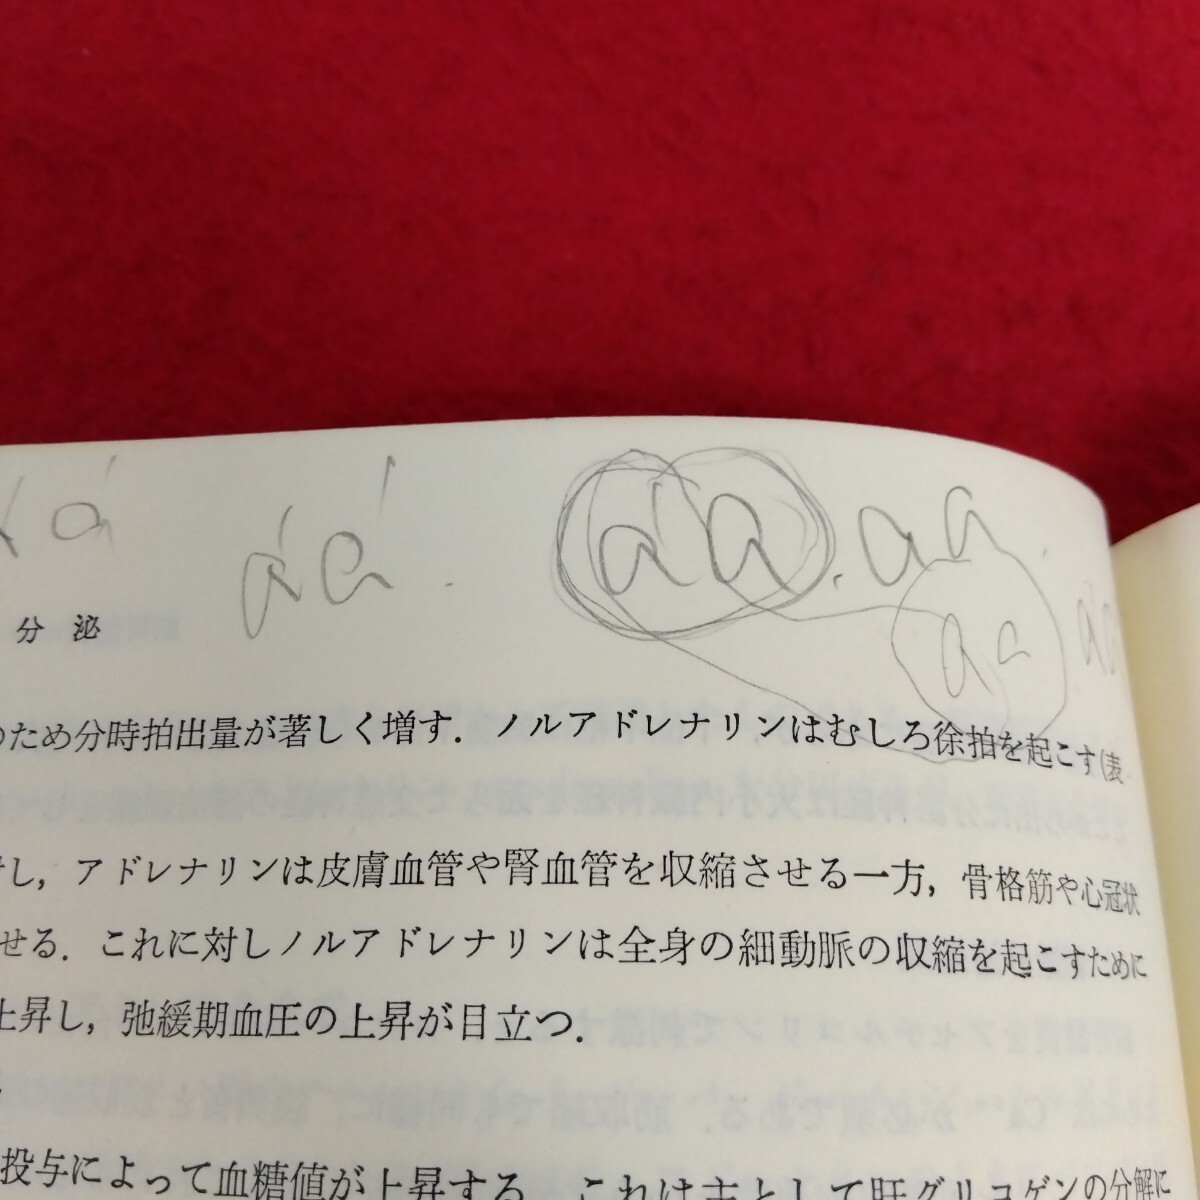 a a'
a' a' .
a' a . a a .
a a
分 泌
のため分時拍出量が著しく増す．ノルアドレナリンはむしろ徐拍を起こす(表
し，アドレナリンは皮膚血管や腎血管を収縮させる一方，骨格筋や心冠状
せる．これに対しノルアドレナリンは全身の細動脈の収縮を起こすために
上昇し，弛緩期血圧の上昇が目立つ．
投与によって血糖値が上昇する．これは主として肝グリコゲンの分解に